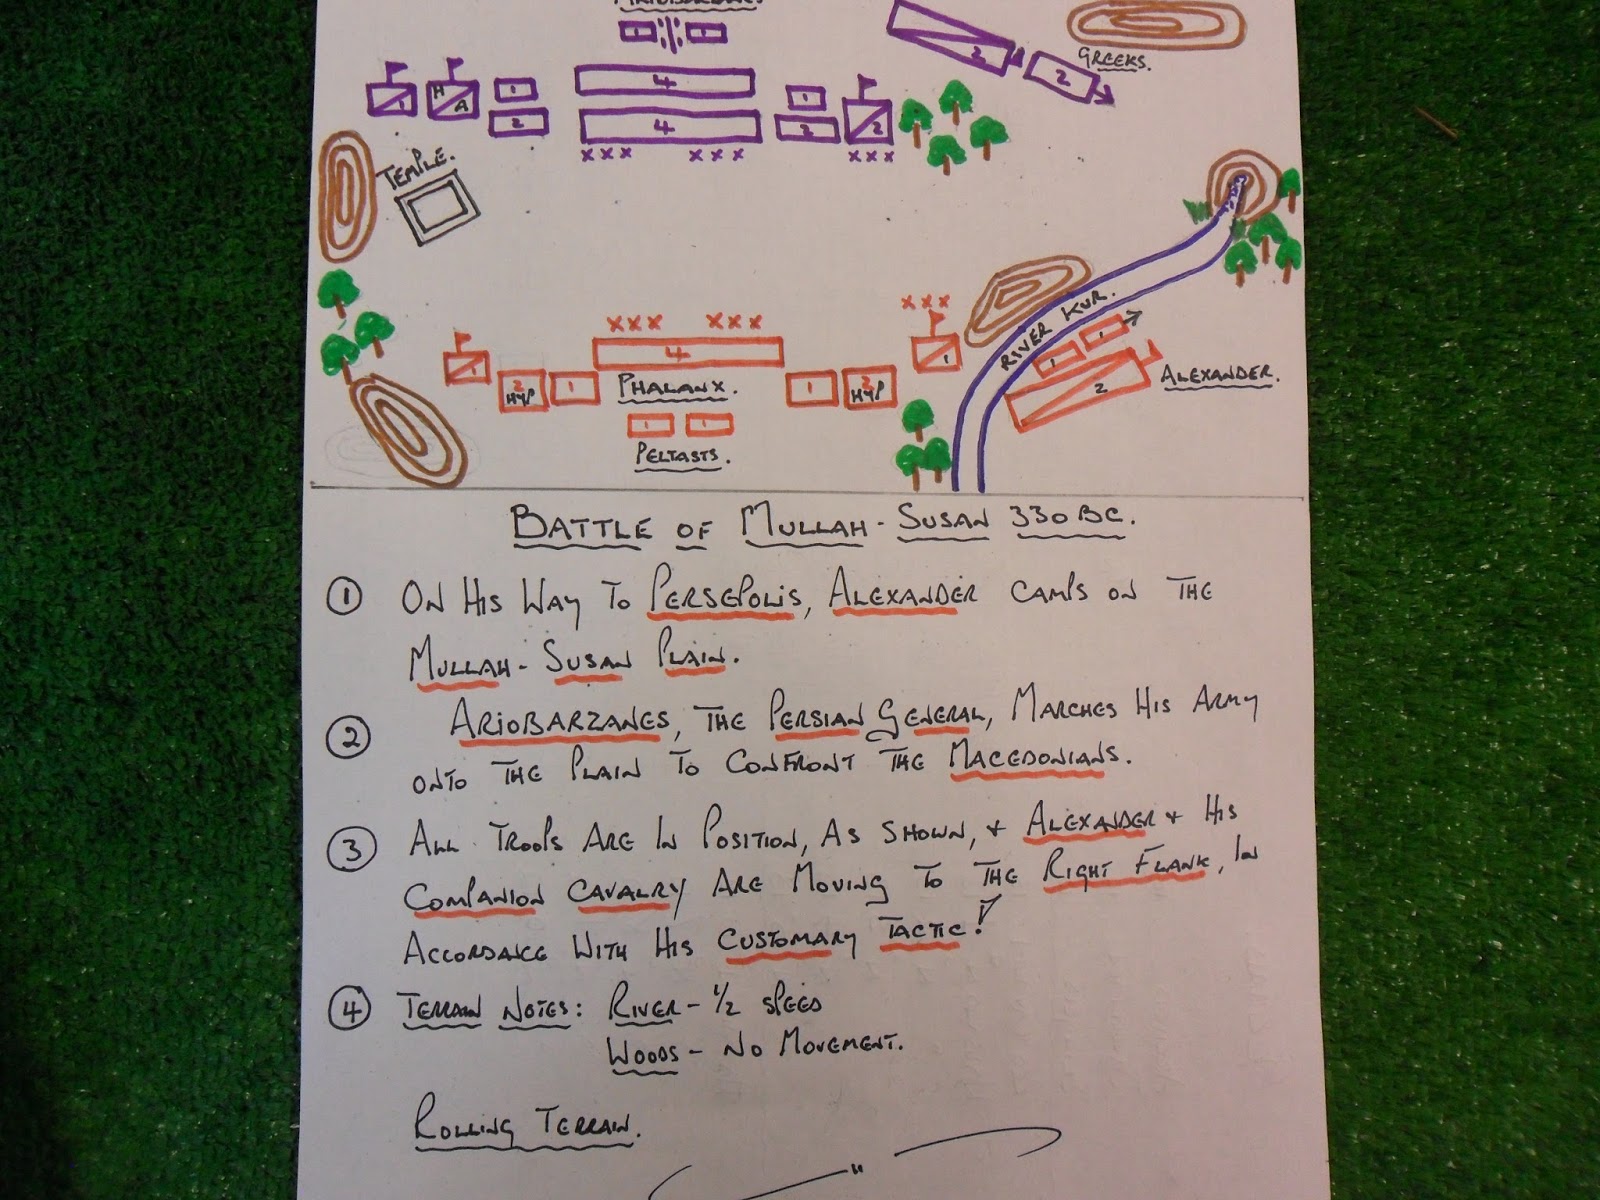 1 1
GREEKS.
2
2
4
1
H A
1
2
4
1
2
2
xxx xxx xxx
TEMPLE.
RIVER KUR.
xxx xxx xxx
1
2 HYP
1
4
PHALANX.
1
2 HYP
1
1
1
2
ALEXANDER.
1 1
PELTASTS.
BATTLE OF MULLAH-SUSAN 330 BC.
1 ON HIS WAY TO PERSEPOLIS, ALEXANDER CAMPS ON THE
MULLAH-SUSAN PLAIN.
2 ARIOBARZANES, THE PERSIAN GENERAL, MARCHES HIS ARMY
ONTO THE PLAIN TO CONFRONT THE MACEDONIANS.
3 ALL TROOPS ARE IN POSITION, AS SHOWN, + ALEXANDER + HIS
COMPANION CAVALRY ARE MOVING TO THE RIGHT FLANK, IN
ACCORDANCE WITH HIS CUSTOMARY TACTIC!
4 TERRAIN NOTES: RIVER - 1/2 SPEED
WOODS - NO MOVEMENT.
ROLLING TERRAIN.